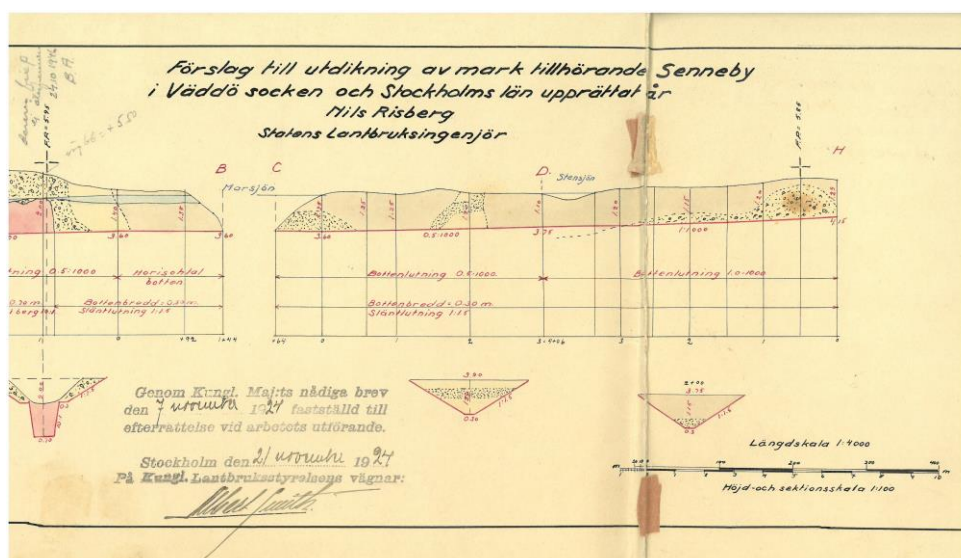 Förslag till utdikning av mark tillhörande Senneby
i Väddö socken och Stockholms län upprättat år
Nils Risberg
Statens Lantbruksingenjör
24.10.1946
B.A.
P.P.= 5.95
+5.50
B
Marsjön
C
D.
Stensjön
P.P.= 5.86
H
3.60
3.60
3.60
0.5:1000
3.75
1:1000
0.5:1000
Horisontal
botten
Bottenlutning 0.5:1000
Bottenlutning 1.0:1000
0.70 m.
Bottenbredd = 0.50 m.
Släntlutning 1:1.5
Bottenbredd = 0.50 m.
Släntlutning 1:1.5
0
+92
1+44
+64
0
1
2
3+4+06
3
2
1
0
Genom Kungl. Maj:ts nådiga brev
den 7 november 1924 fastställd till
efterrättelse vid arbetets utförande.
Stockholm den 21 novembre 1924
På Kungl. Lantbruksstyrelsens vägnar:
3.00
1:1.5
0.50
2+00
3.75
1.15
1:1.5
0.5
Längdskala 1:4000
Höjd- och sektionsskala 1:100